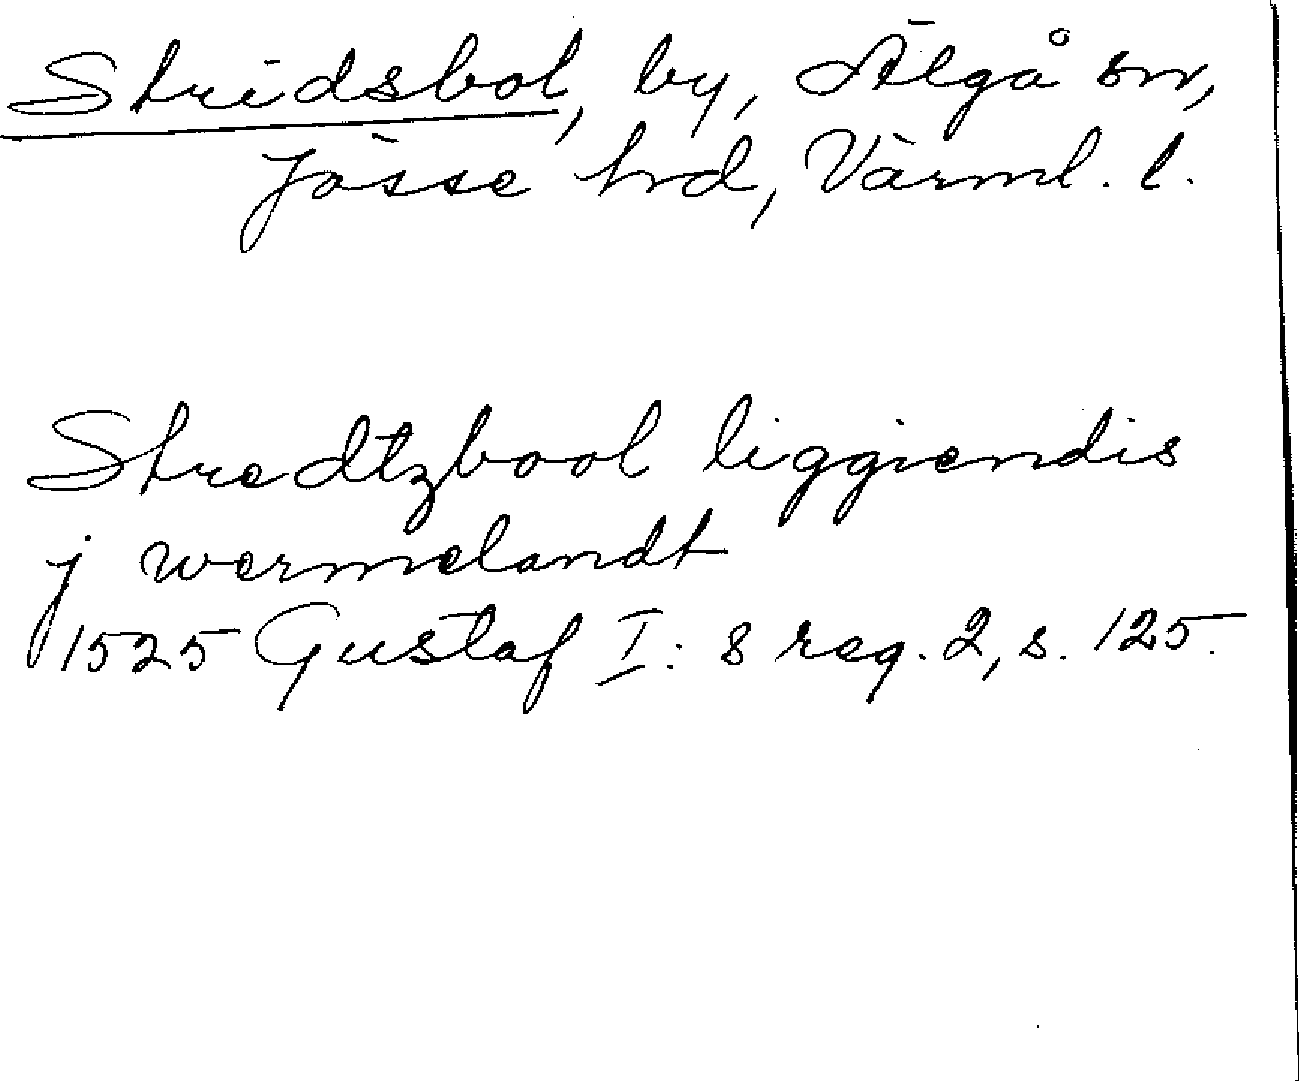 Stridsbol, by, Älgå sn,
Jösse hd, Värml. l.
Stredtzbool liggiendis
j wermelandt
1525 Gustaf I: s reg. 2, s. 125.